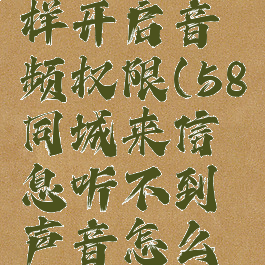 样开启音
频权限(58
同城来信
息听不到
声音怎么